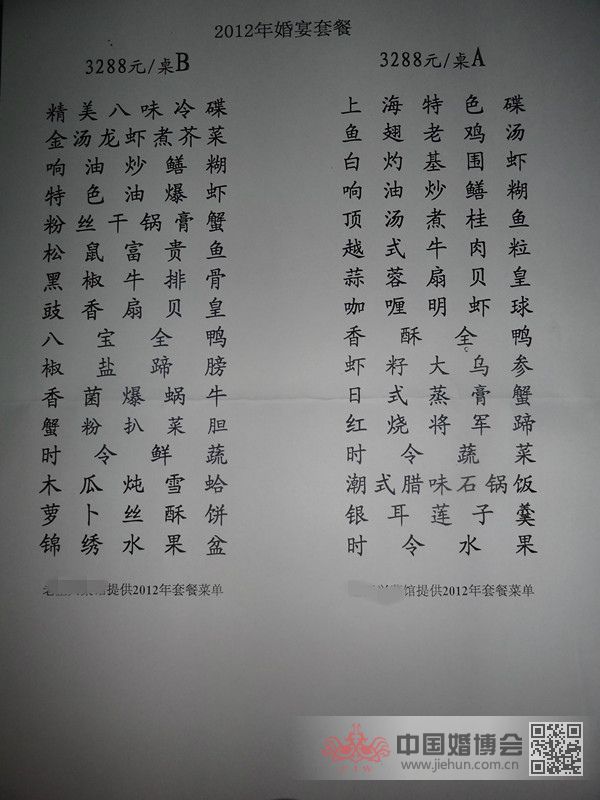 2012年婚宴套餐
3288元/桌B
精美八味冷碟
金汤龙虾煮芥菜
响油炒鳝糊
特色油爆虾
粉丝干锅膏蟹
松鼠富贵鱼
黑椒牛排骨
豉香扇贝皇
八宝全鸭
椒盐蹄膀
香菌爆蜗牛
蟹粉扒菜胆
时令鲜蔬
木瓜炖雪蛤
萝卜丝酥饼
锦绣水果盆
馆提供2012年套餐菜单
3288元/桌A
上海特色碟
鱼翅老鸡汤
白灼基围虾
响油炒鳝糊
顶汤煮桂鱼
越式牛肉粒
蒜蓉扇贝皇
咖喱明虾球
香酥全鸭
虾籽大乌参
日式蒸膏蟹
红烧将军蹄
时令蔬菜
潮式腊味石锅饭
银耳莲子羹
时令水果
馆提供2012年套餐菜单
中国婚博会
www.jiehun.com.cn